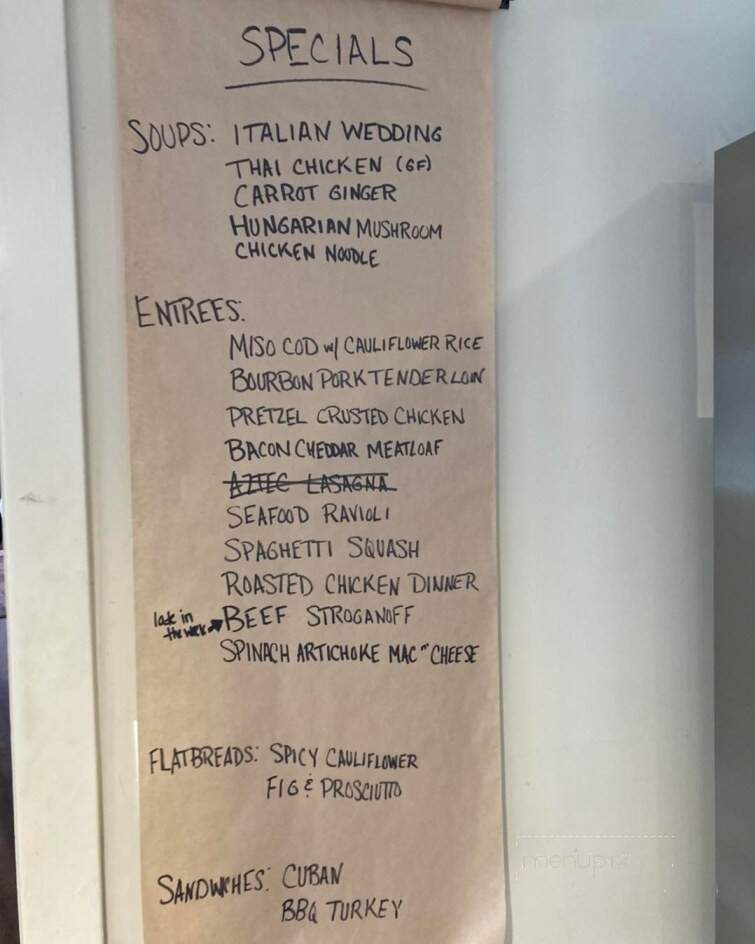 SPECIALS
SOUPS: ITALIAN WEDDING
THAI CHICKEN (GF)
CARROT GINGER
HUNGARIAN MUSHROOM
CHICKEN NOODLE
ENTREES:
MISO COD w/ CAULIFLOWER RICE
BOURBON PORK TENDERLOIN
PRETZEL CRUSTED CHICKEN
BACON CHEDDAR MEATLOAF
AZTEC LASAGNA
SEAFOOD RAVIOLI
SPAGHETTI SQUASH
ROASTED CHICKEN DINNER
late in
the week → BEEF STROGANOFF
SPINACH ARTICHOKE MAC "n" CHEESE
FLATBREADS: SPICY CAULIFLOWER
FIG & PROSCIUTTO
SANDWICHES: CUBAN
BBQ TURKEY